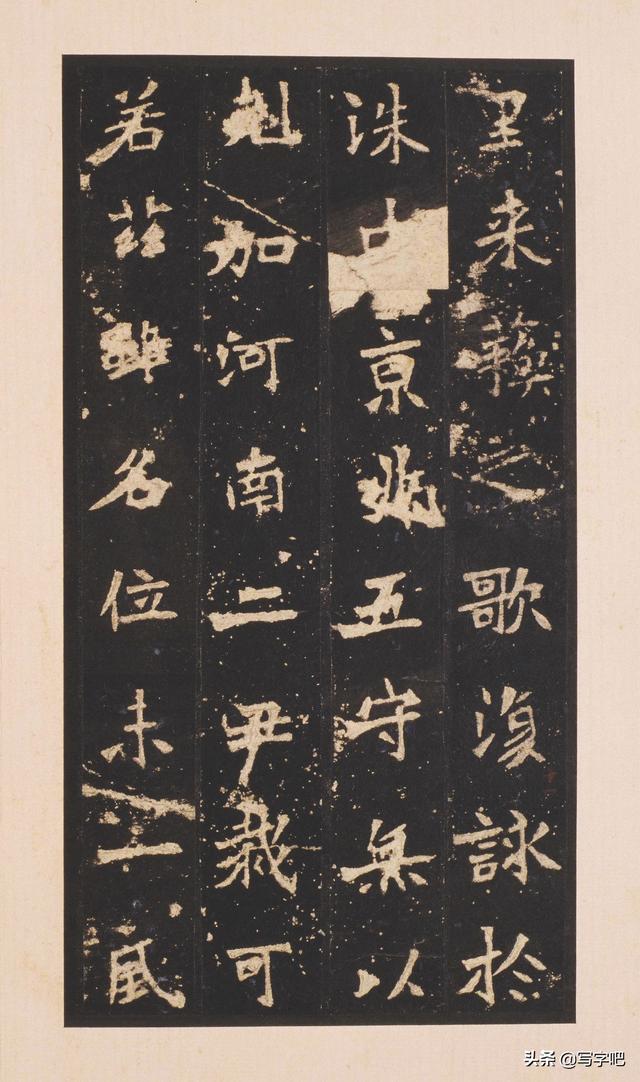 里来蘓之歌復詠於
洙中京兆五守無以
尅加河南二尹裁可
若兹雖名位未一風
头条 @写字吧